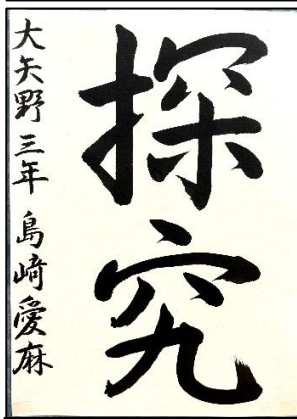 探究
大矢野三年 島崎愛麻